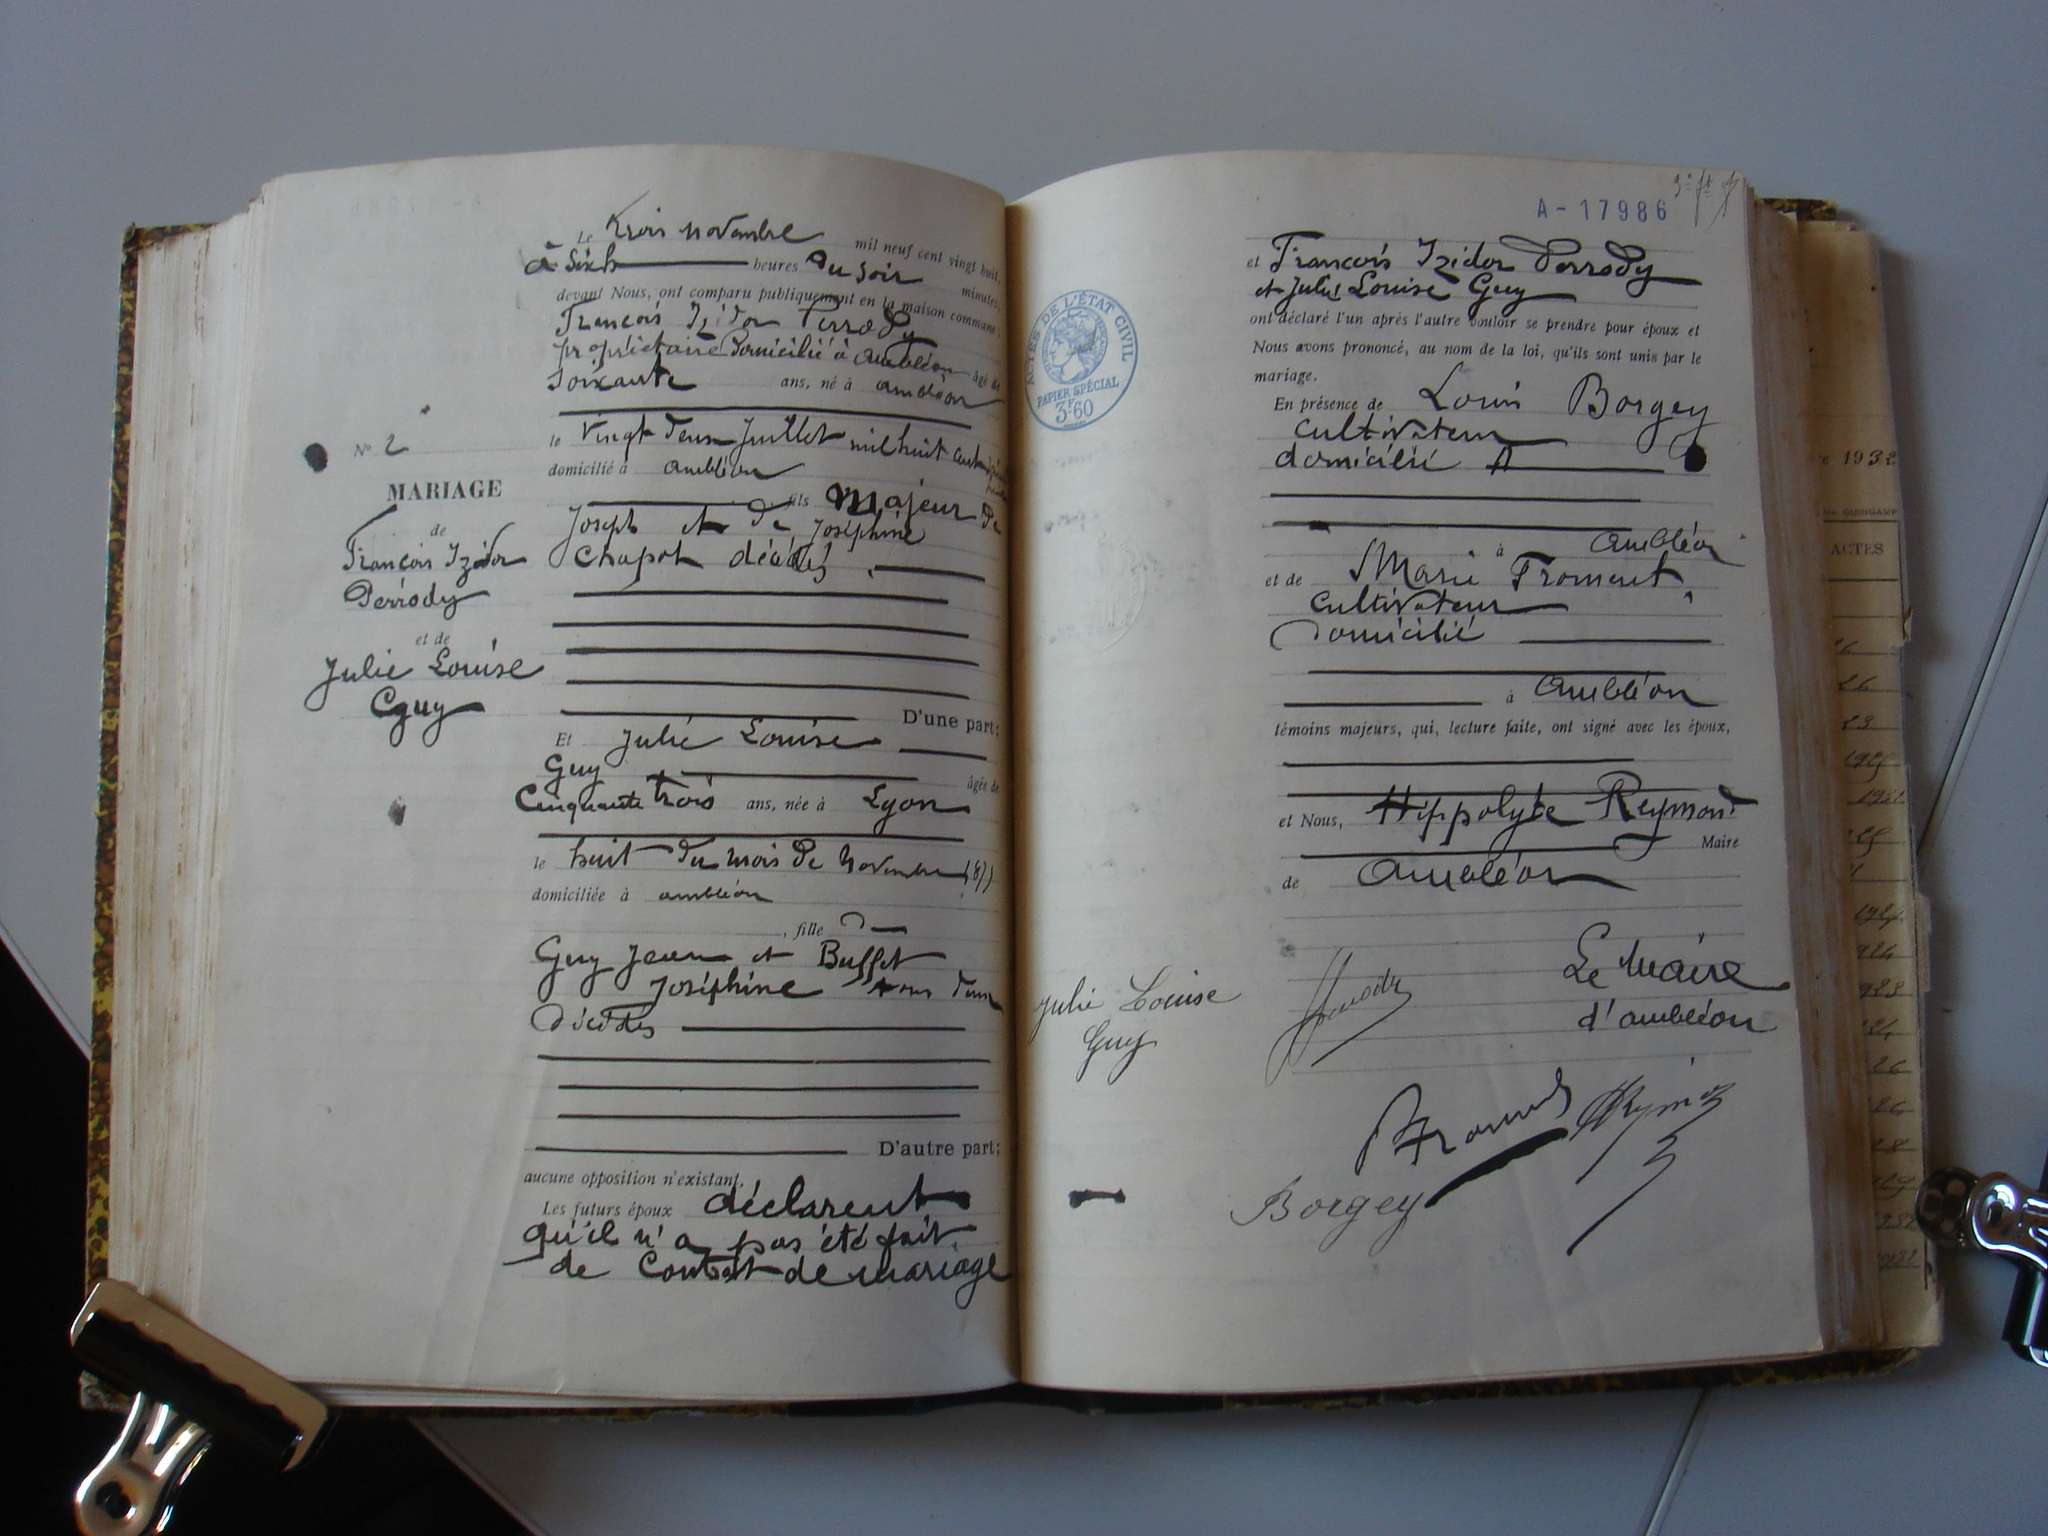 Le trois novembre mil neuf cent vingt huit,
à Six h heures du soir minutes,
devant Nous, ont comparu publiquement en la maison commune:
François Izidor Perrody
propriétaire domicilié à ambléon âgé de
soixante ans, né à ambléon
le vingt deux Juillet mil huit cent
domicilié à ambléon
fils Majeur de
Joseph et de Joséphine
Chapot décédés
D'une part;
Et Julie Louise
Guy âgée de
Cinquante trois ans, née à Lyon
le huit du mois de Novembre
domiciliée à ambléon
, fille de
Guy Jean et Buffet
Joséphine tous deux
décédés
D'autre part;
aucune opposition n'existant,
Les futurs époux déclarent
qu'il n'a pas été fait
de Contrat de mariage
N° 2
MARIAGE
de
François Izidor
Perrody
et de
Julie Louise
Guy
A-17986
et François Izidor Perrody
et Julie Louise Guy
ont déclaré l'un après l'autre vouloir se prendre pour époux et
Nous avons prononcé, au nom de la loi, qu'ils sont unis par le
mariage.
En présence de Louis Borgey
cultivateur
domicilié
à Ambléon
et de Marie Froment,
cultivateur
domicilié
à Ambléon
témoins majeurs, qui, lecture faite, ont signé avec les époux,
et Nous, Hippolyte Reymond
Maire
de Ambléon
Le Maire
d'ambléon
Julie Louise
Guy
Borgey
ACTES DE L'ÉTAT CIVIL
PAPIER SPÉCIAL
3F60
1932
ACTES